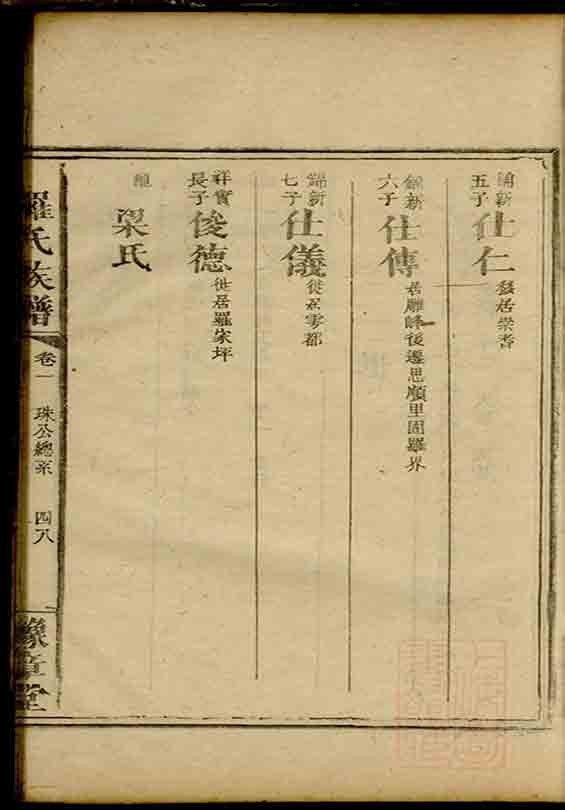 錦新五子 仕仁 移居崇香
錦新六子 仕傳 居雁峰後遷思順里固羅界
錦新七子 仕儀 徙居雩都
祥實長子 俊德 徙居羅家坪
梁氏
羅氏族譜 卷一 珠公總系 四八 豫章堂